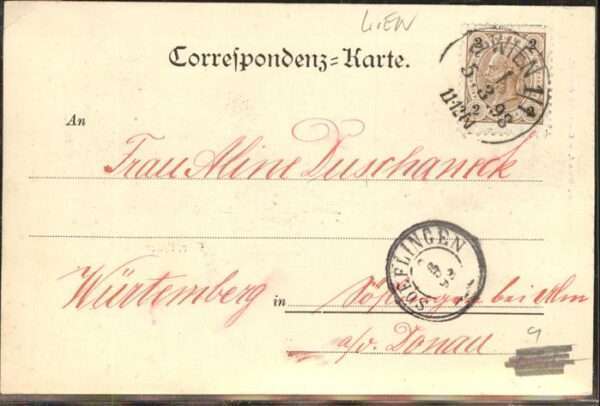 WIEN
Correspondenz=Karte.
2 2
WIEN 1/1
5.3.98
11-12V
2 2
An
Frau Aline Duschaneck
SOEFLINGEN
Würtemberg in Söflingen bei Ulm
a/d. Donau
9